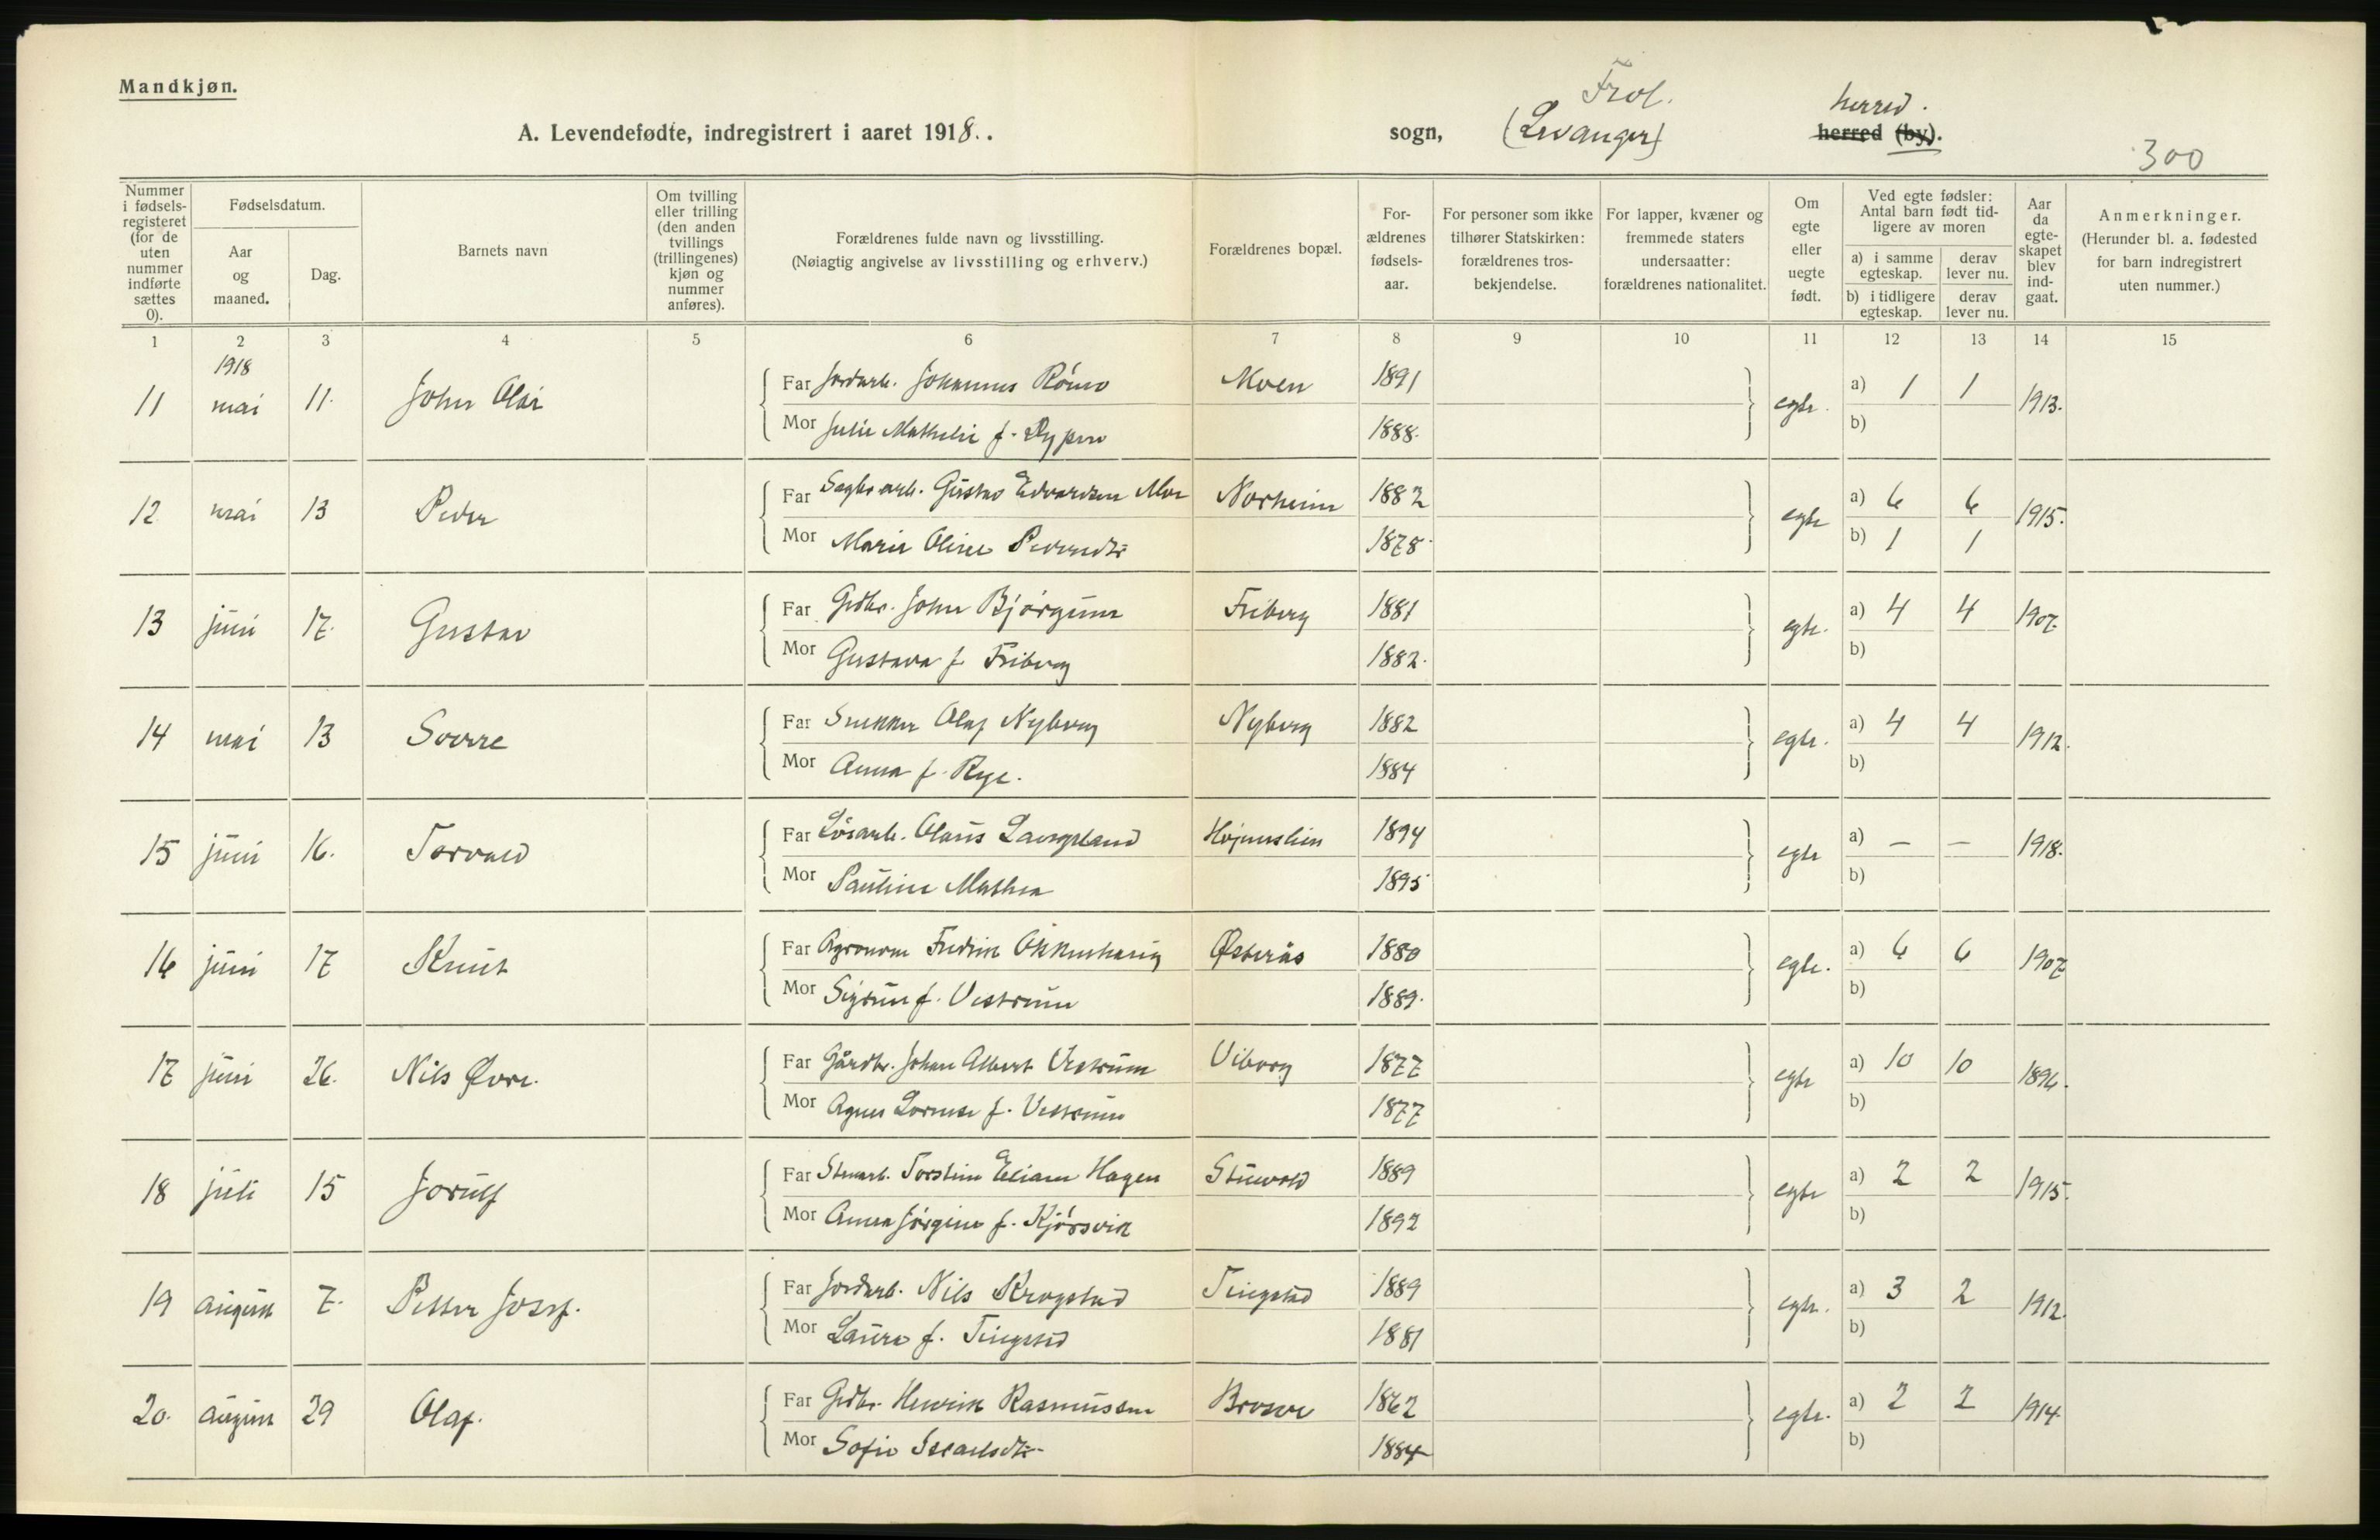 Mandkjøn.
A. Levendefødte, indregistrert i aaret 1918.
sogn, Frol. (Levanger) herred. herred (by).
300
Nummer i fødsels-registeret (for de uten nummer indførte sættes 0).
Fødselsdatum.
Aar og maaned.
Dag.
Barnets navn
Om tvilling eller trilling (den anden tvillings (trillingenes) kjøn og nummer anføres).
Forældrenes fulde navn og livsstilling.
(Nøiagtig angivelse av livsstilling og erhverv.)
Forældrenes bopæl.
For-ældrenes fødsels-aar.
For personer som ikke tilhører Statskirken: forældrenes tros-bekjendelse.
For lapper, kvæner og fremmede staters undersaatter: forældrenes nationalitet.
Om egte eller uegte født.
Ved egte fødsler: Antal barn født tid-ligere av moren
a) i samme egteskap. derav lever nu.
b) i tidligere egteskap. derav lever nu.
Aar da egte-skapet blev ind-gaat.
Anmerkninger.
(Herunder bl. a. fødested for barn indregistrert uten nummer.)
1 2 3 4 5 6 7 8 9 10 11 12 13 14 15
1918
11 mai 11. John Far Jordarb. Johannes Moen 1891 egte. a) 1 1 1913.
Mor Julie f. 1888. b)
12 mai 13 Peder Far Gustav Edvardsen Moe Norheim 1882 egte a) 6 6 1915.
Mor Marie Oline Pedersdtr 1878. b) 1 1
13 juni 17. Gustav Far Grdbr. John Bjørgum Friberg 1881 egte. a) 4 4 1907.
Mor Gustava f. Friberg 1882. b)
14 mai 13 Sverre Far Snekker Olaf Nyberg Nyberg 1882 egte. a) 4 4 1912.
Mor Anna f. Rye. 1884 b)
15 juni 16. Torvald Far Løsarb. Olaus 1894 egte a) — — 1918.
Mor Pauline Mathea 1895 b)
16 juni 17 Knut Far Agronom Fredrik Okkenhaug Østerås 1880 egte. a) 6 6 1907
Mor Sigrun f. Vestrum 1889. b)
17 juni 26. Nils Øvre. Far Gårdbr. Johan Albert Vestrum Viborg 1877 egte a) 10 10 1896.
Mor Agnes Lornse f. Vestrum 1877 b)
18 juli 15 Jorulf Far Torstein Eliasen Hagen 1889 egte a) 2 2 1915.
Mor Anna Jørgine f. Kjørsvik 1892 b)
19 august 7. Petter Josef. Far Jordarb. Nils Krogstad Tingstad 1889 egte. a) 3 2 1912.
Mor Laura f. Tingstad 1881 b)
20. august 29 Olaf. Far Grdbr. Henrik Rasmussen 1862 egte. a) 2 2 1914.
Mor Sofie 1884 b)